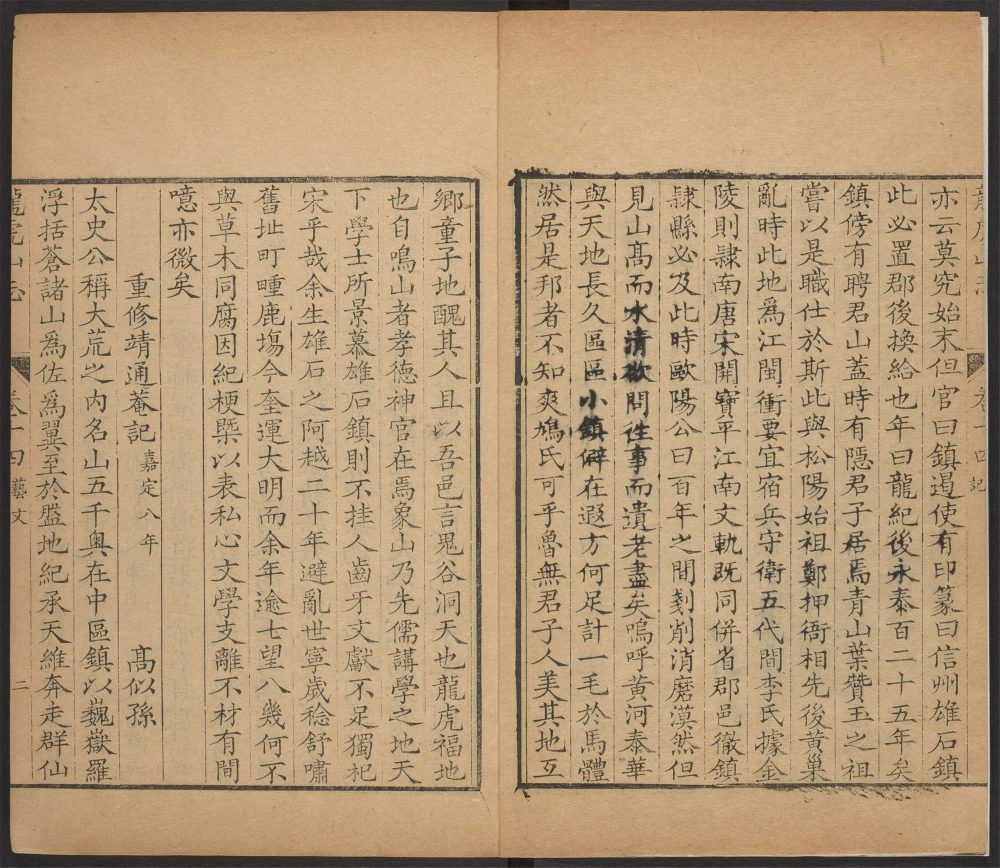 亦云莫究始末但官曰鎮遏使有印篆曰信州雄石鎮
此必置郡後換給也年曰龍紀後永泰百二十五年矣
鎮傍有聘君山蓋時有隱君子居焉青山葉贊玉之祖
嘗以是職仕於斯此與松陽始祖鄭押衙相先後黃巢
亂時此地爲江閩衝要宜宿兵守衛五代間李氏據金
陵則隷南唐宋開寶平江南文軌既同併省郡邑徹鎮
隷縣必及此時歐陽公曰百年之間剗削消磨漠然但
見山髙而水清欲問徃事而遺老盡矣嗚呼黄河泰華
與天地長久區區小鎮僻在遐方何足計一毛於馬體
然居是邦者不知爽鳩氏可乎魯無君子人美其地互
鄉童子地醜其人且以吾邑言鬼谷洞天也龍虎福地
也自鳴山者孝德神官在焉象山乃先儒講學之地天
下學士所景慕雄石鎮則不挂人齒牙文獻不足獨杞
宋乎哉余生雄石之阿越二十年避亂世寧歲稔舒嘯
舊址町畽鹿場今奎運大明而余年逾七望八幾何不
與草木同腐因紀梗槩以表私心文學支離不材有間
噫亦微矣
重修靖通菴記 嘉定八年 髙似孫
太史公稱大荒之内名山五千奥在中區鎮以巍嶽羅
浮括蒼諸山爲佐爲翼至於盤地紀承天維奔走群仙
龍虎山志 卷十四藝文 二